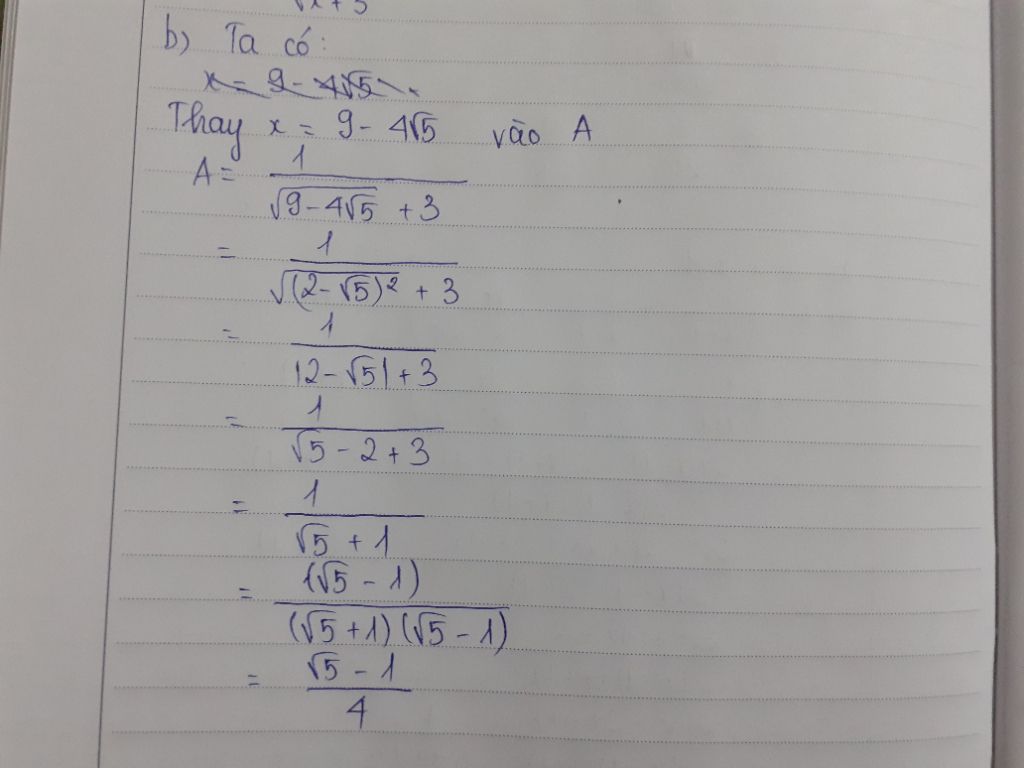 √x+3
b) Ta có:
x = 9 - 4√5
Thay x = 9 - 4√5 vào A
A = 1/(√(9-4√5) + 3)
= 1/(√((2-√5)²) + 3)
= 1/(|2-√5|+3)
= 1/(√5-2+3)
= 1/(√5+1)
= (√5-1)/((√5+1)(√5-1))
= (√5-1)/4